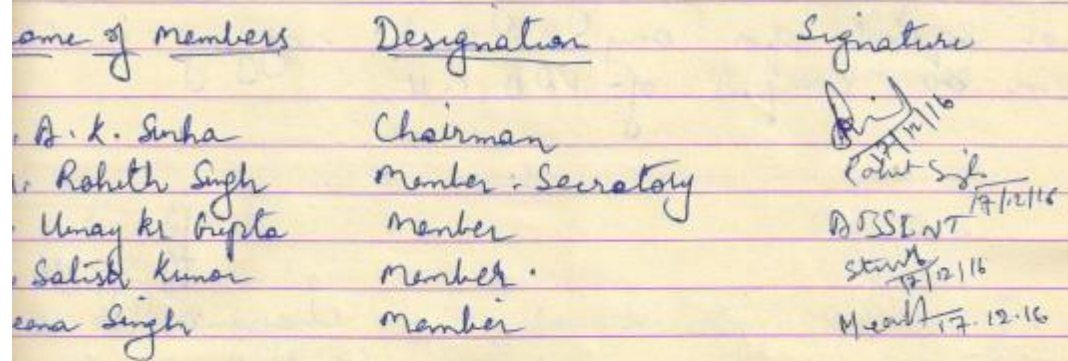 ame of Members Designation Signature
. A. K. Sinha Chairman 17/12/16
. Rohith Singh Member-Secretary Rohit Singh 17/12/16
. Umay Kr Gupta Member ABSENT
. Satish Kumar Member. 17/12/16
eena Singh Member 17.12.16